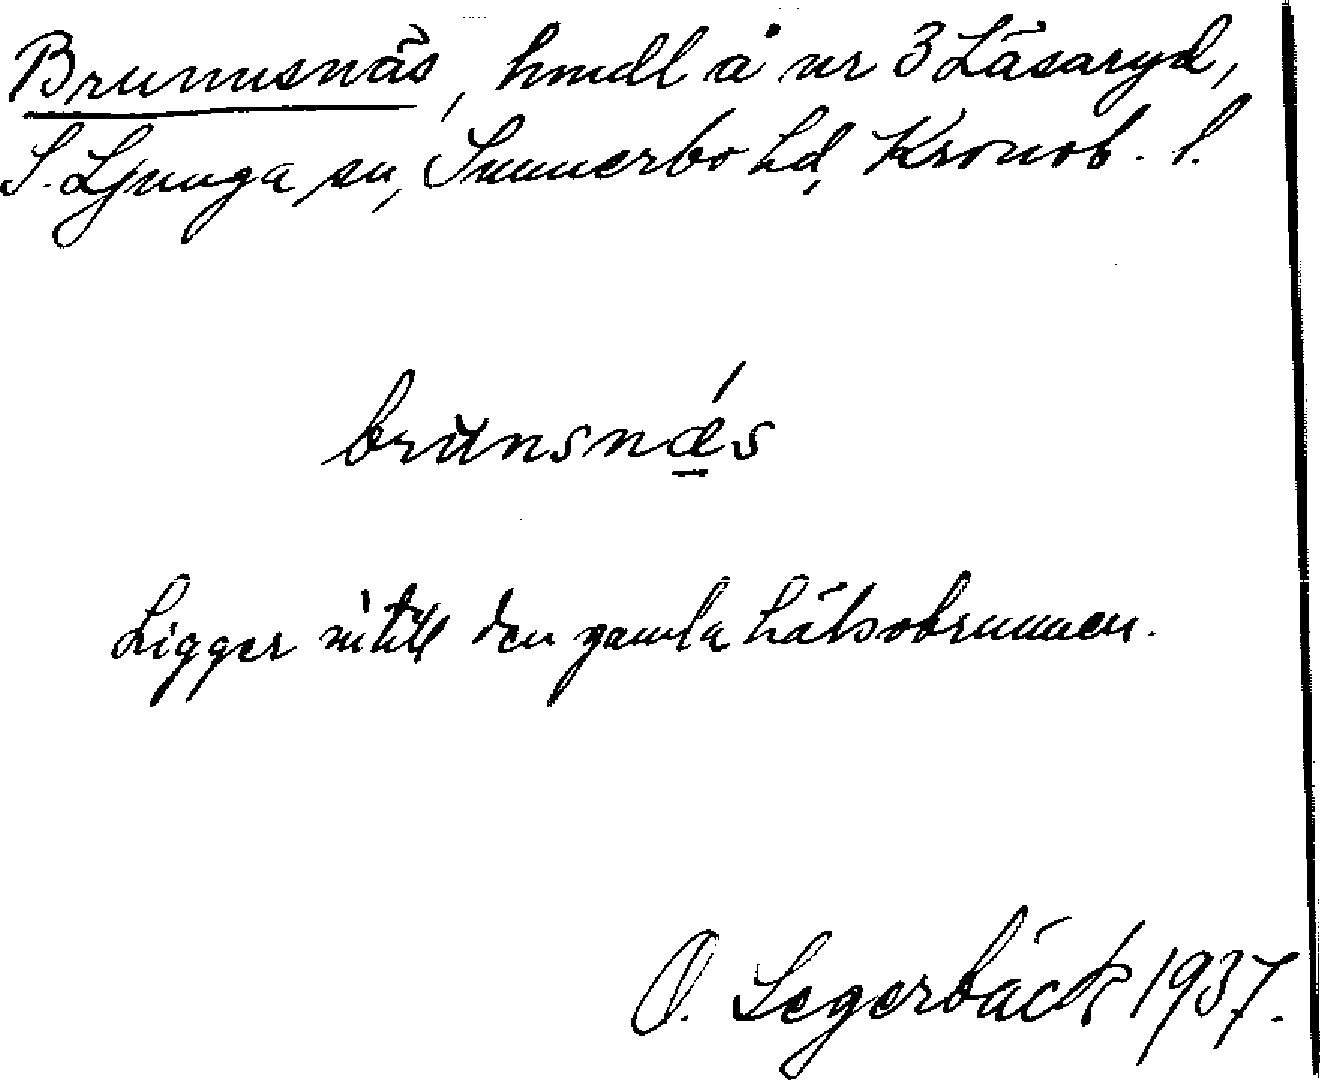 Brunnsnäs, hmdl å nr 3 Läsaryd,
S. Ljunga sn, Sunnerbo hd, Kronob. l.
brunsnǽs
Ligger intill den gamla hälsobrunnen.
O. Segerbäck 1937.